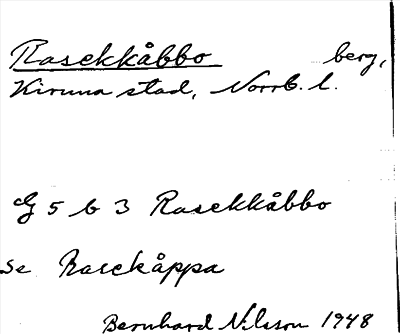 Rasekkåbbo berg,
Kiruna stad, Norrb. l.
G 5 b 3 Rasekkåbbo
se Rasekåppa
Bernhard Nilsson 1948